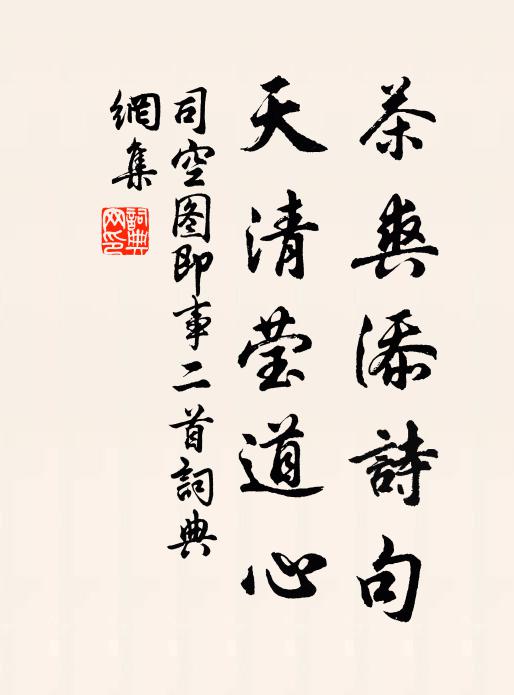 茶爽添詩句
天清莹道心
司空图即事二首詞典
網集
詞典網印